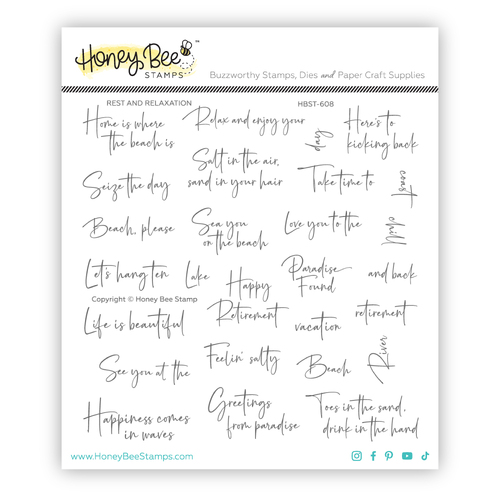 Honey Bee
STAMPS™
Buzzworthy Stamps, Dies and Paper Craft Supplies
REST AND RELAXATION
HBST-608
Home is where
the beach is
Relax and enjoy your
day
Here's to
kicking back
Seize the day
Salt in the air,
sand in your hair
Take time to
coast
Beach, please
Sea you
on the beach
Love you to the
chill
Let's hang ten
Lake
Happy
Retirement
Paradise
Found
and back
Copyright © Honey Bee Stamp
Life is beautiful
vacation
retirement
See you at the
Feelin' salty
Beach
River
Happiness comes
in waves
Greetings
from paradise
Toes in the sand,
drink in the hand
www.HoneyBeeStamps.com